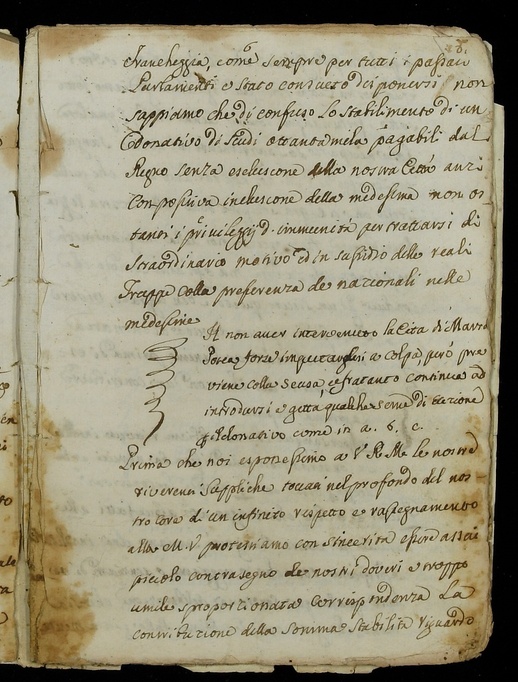 8.
francheggia, come sempre per tutti i passati
Parlamenti e stato consueto di ponersi non
sappiamo che di confuso lo stabilimento di un
Donativo di Scudi ottantamila pagabili dal
Regno senza esclusione della nostra Città anzi
con positiva inclusione della medesima non os
tanti i privileggj d'immunità per trattarsi di
straordinario motivo ed in sussidio delle reali
Truppe colla preferenza de nazionali nelle
medesime
Il non aver intervenuto la Città di
forse a colpa, però pre
viene colla scusa, e frattanto continua ad
introdursi e getta qualche seme di
Donativo come in a. 6. c.
Prima che noi esponessimo a V. R. M. le nostre
riverenti suppliche toccati nel profondo del nos
tro core d'un infinito rispetto e rassegnamento
alla M. V. protestiamo con sincerità essere assai
picciolo contrasegno de nostri doveri e troppo
umile sproporzionata corrispondenza La
contribuzione della somma stabilita riguardo